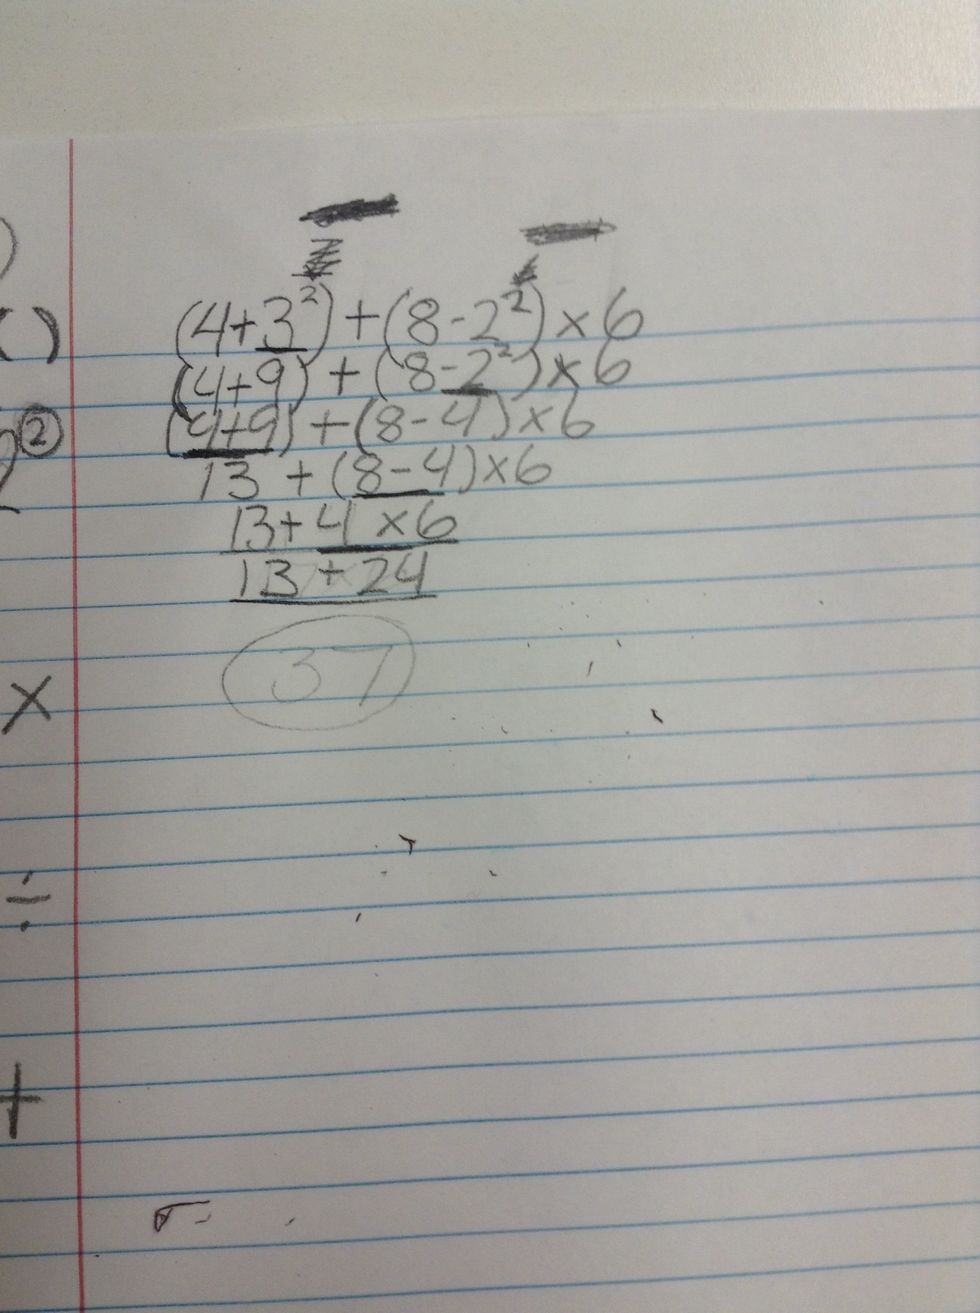 (4+3²)+(8-2²)×6
(4+9)+(8-2²)×6
(4+9)+(8-4)×6
13+(8-4)×6
13+4×6
13+24
37
( )
②
×
÷
+